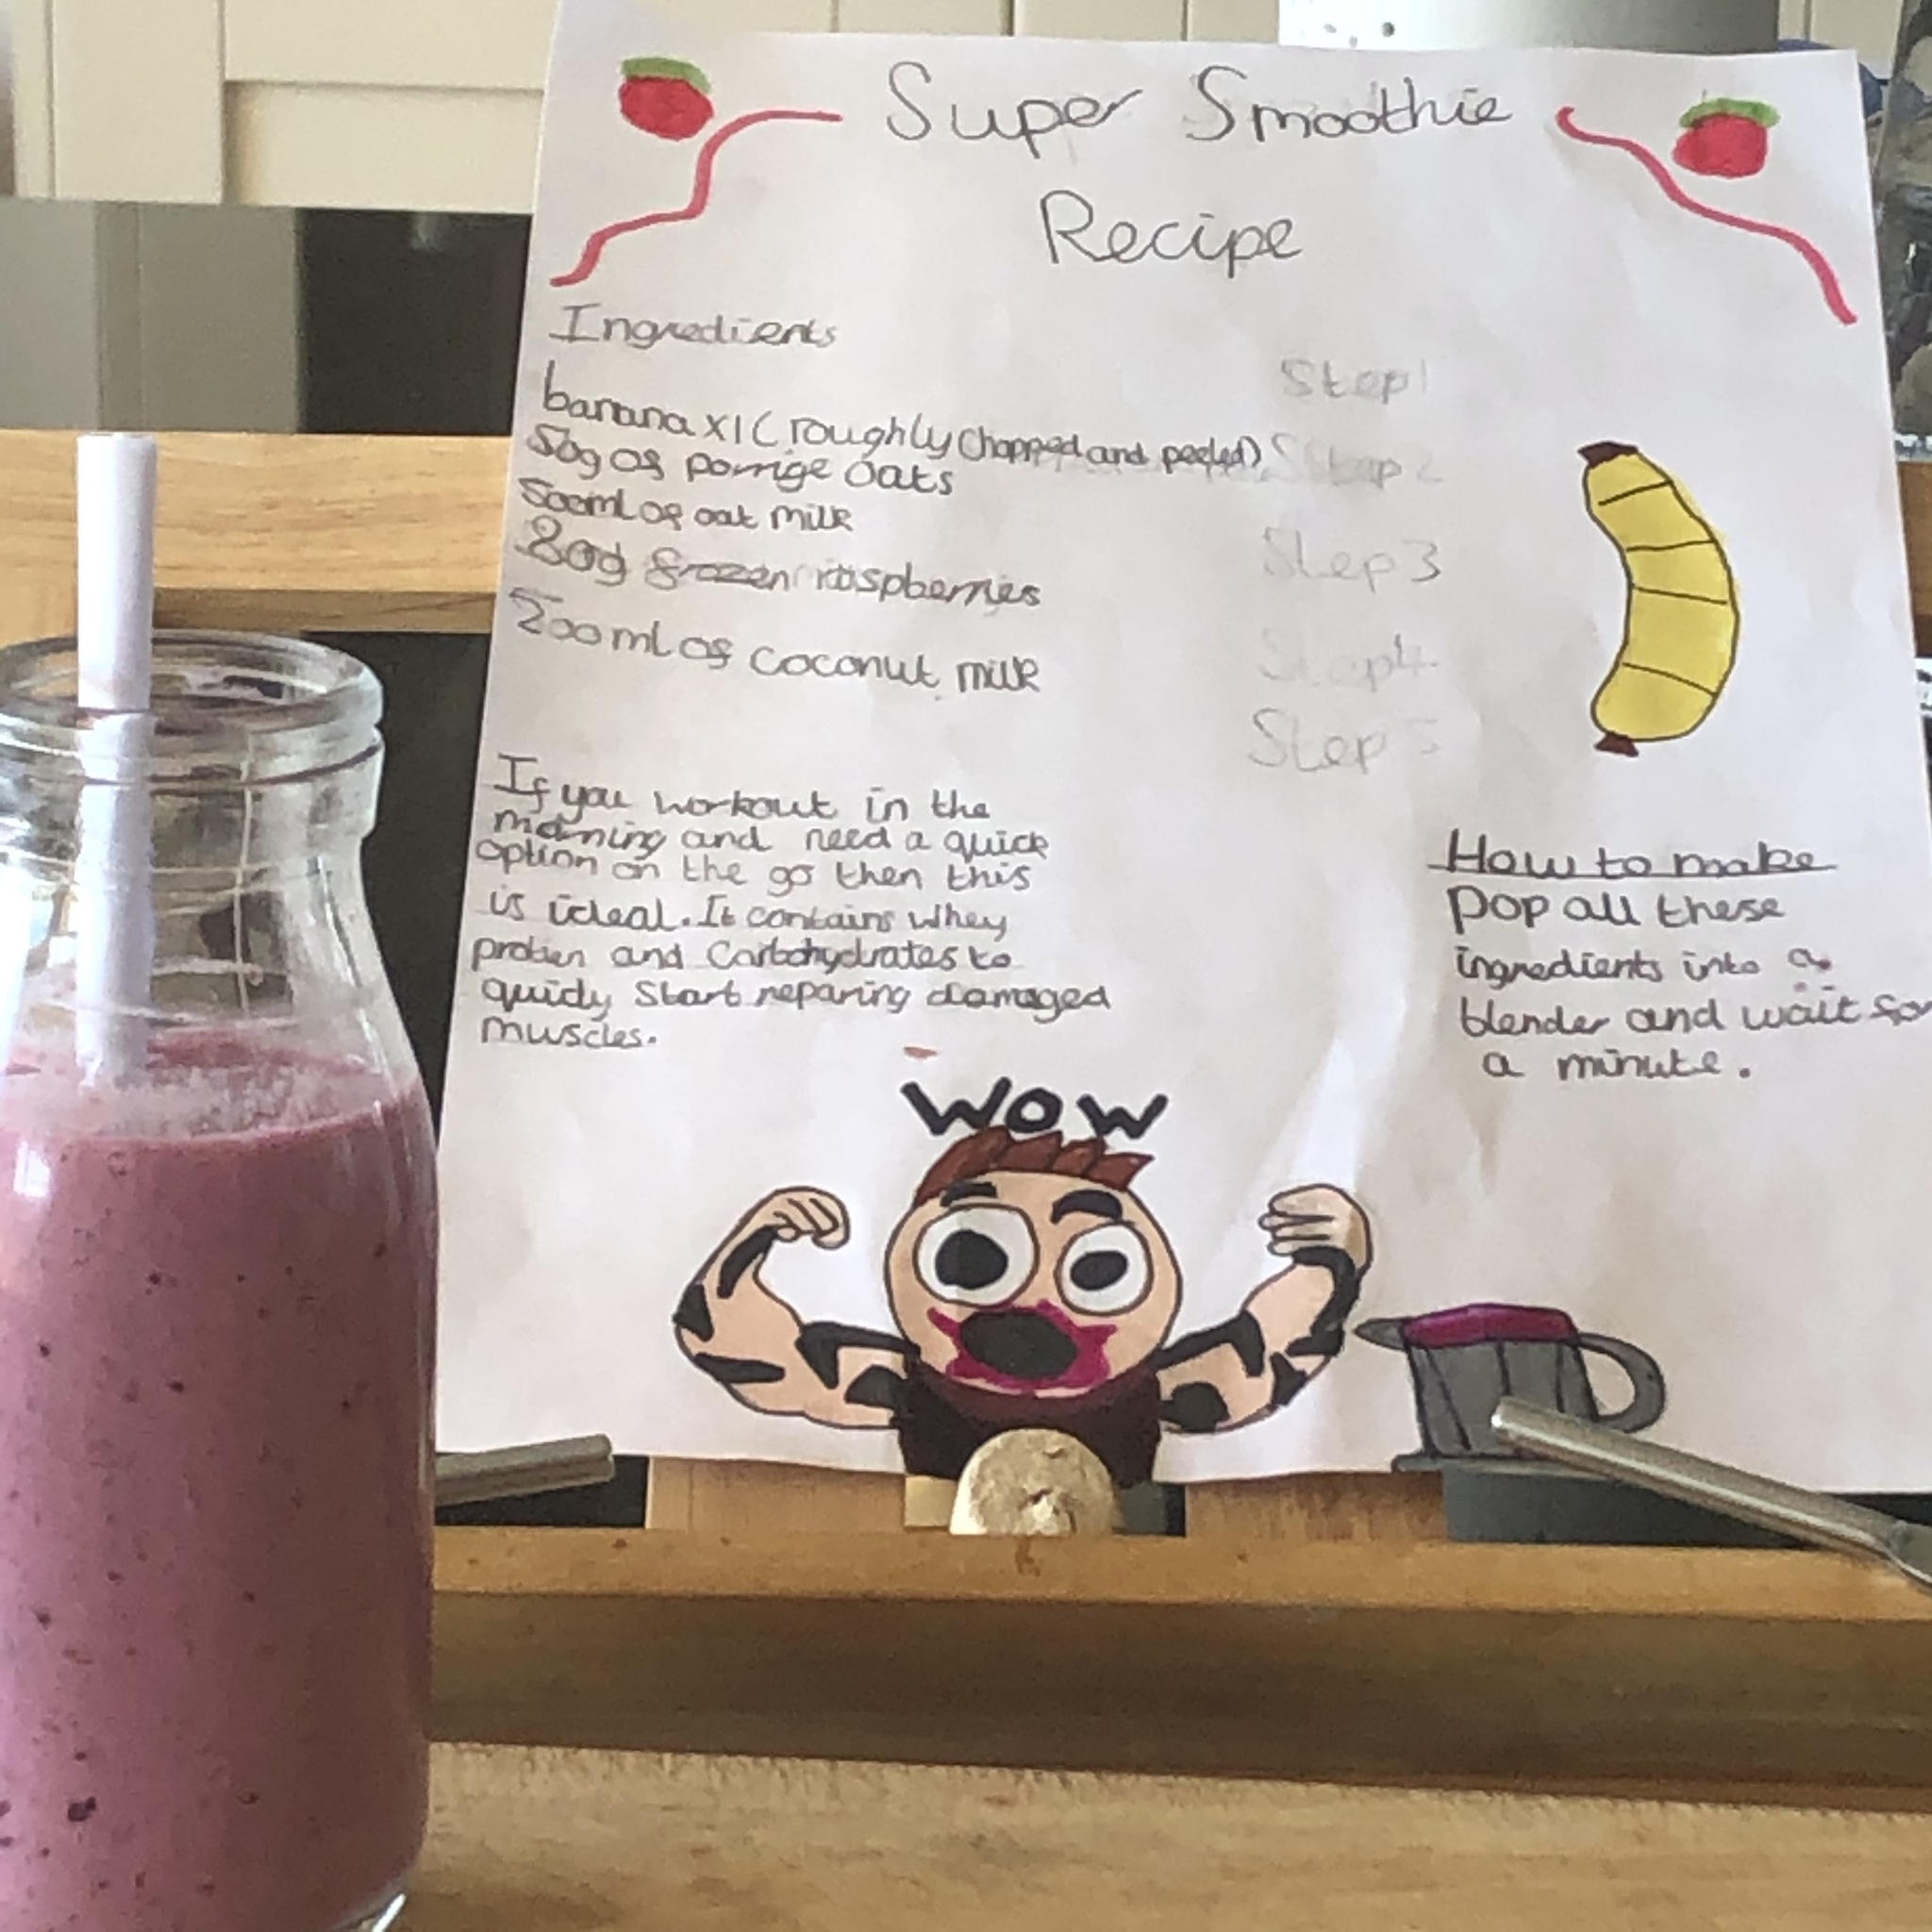 Super Smoothie
Recipe
Ingredients
banana x1 (roughly chopped and peeled)
50g of porrige oats
500ml of oat milk
80g frozen raspberries
200ml of coconut milk
Step 1
Step 2
Step 3
Step 4
Step 5
If you workout in the
morning and need a quick
option on the go then this
is ideal. It contains whey
protien and Carbohydrates to
quicly Start reparing damaged
muscles.
How to make
Pop all these
ingredients into a
blender and wait for
a minute.
WOW